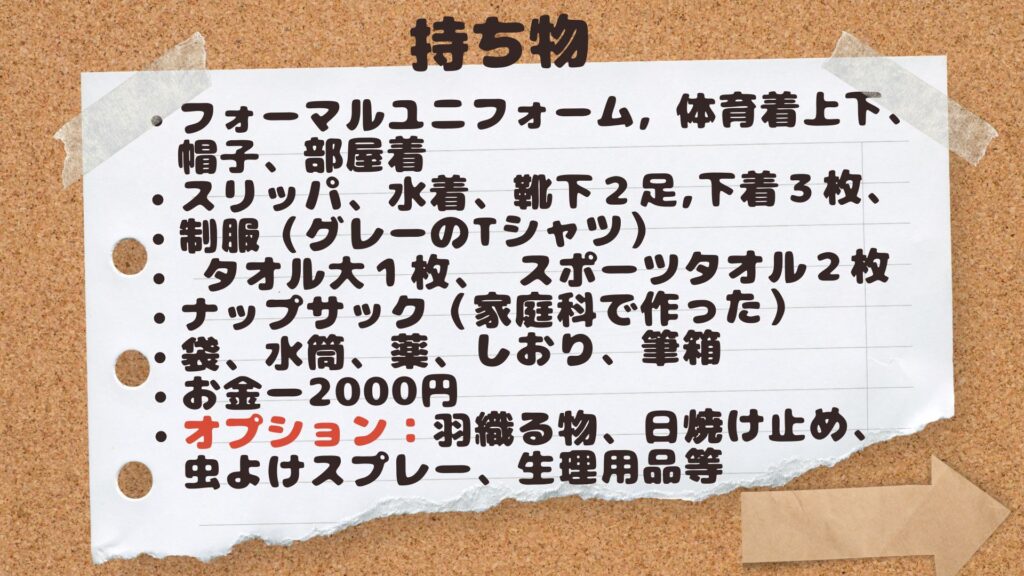 持ち物
• フォーマルユニフォーム, 体育着上下、
帽子、部屋着
• スリッパ、水着、靴下２足,下着３枚、
• 制服（グレーのTシャツ）
• タオル大１枚、 スポーツタオル２枚
• ナップサック（家庭科で作った）
• 袋、水筒、薬、しおり、筆箱
• お金ー2000円
• オプション：羽織る物、日焼け止め、
虫よけスプレー、生理用品等